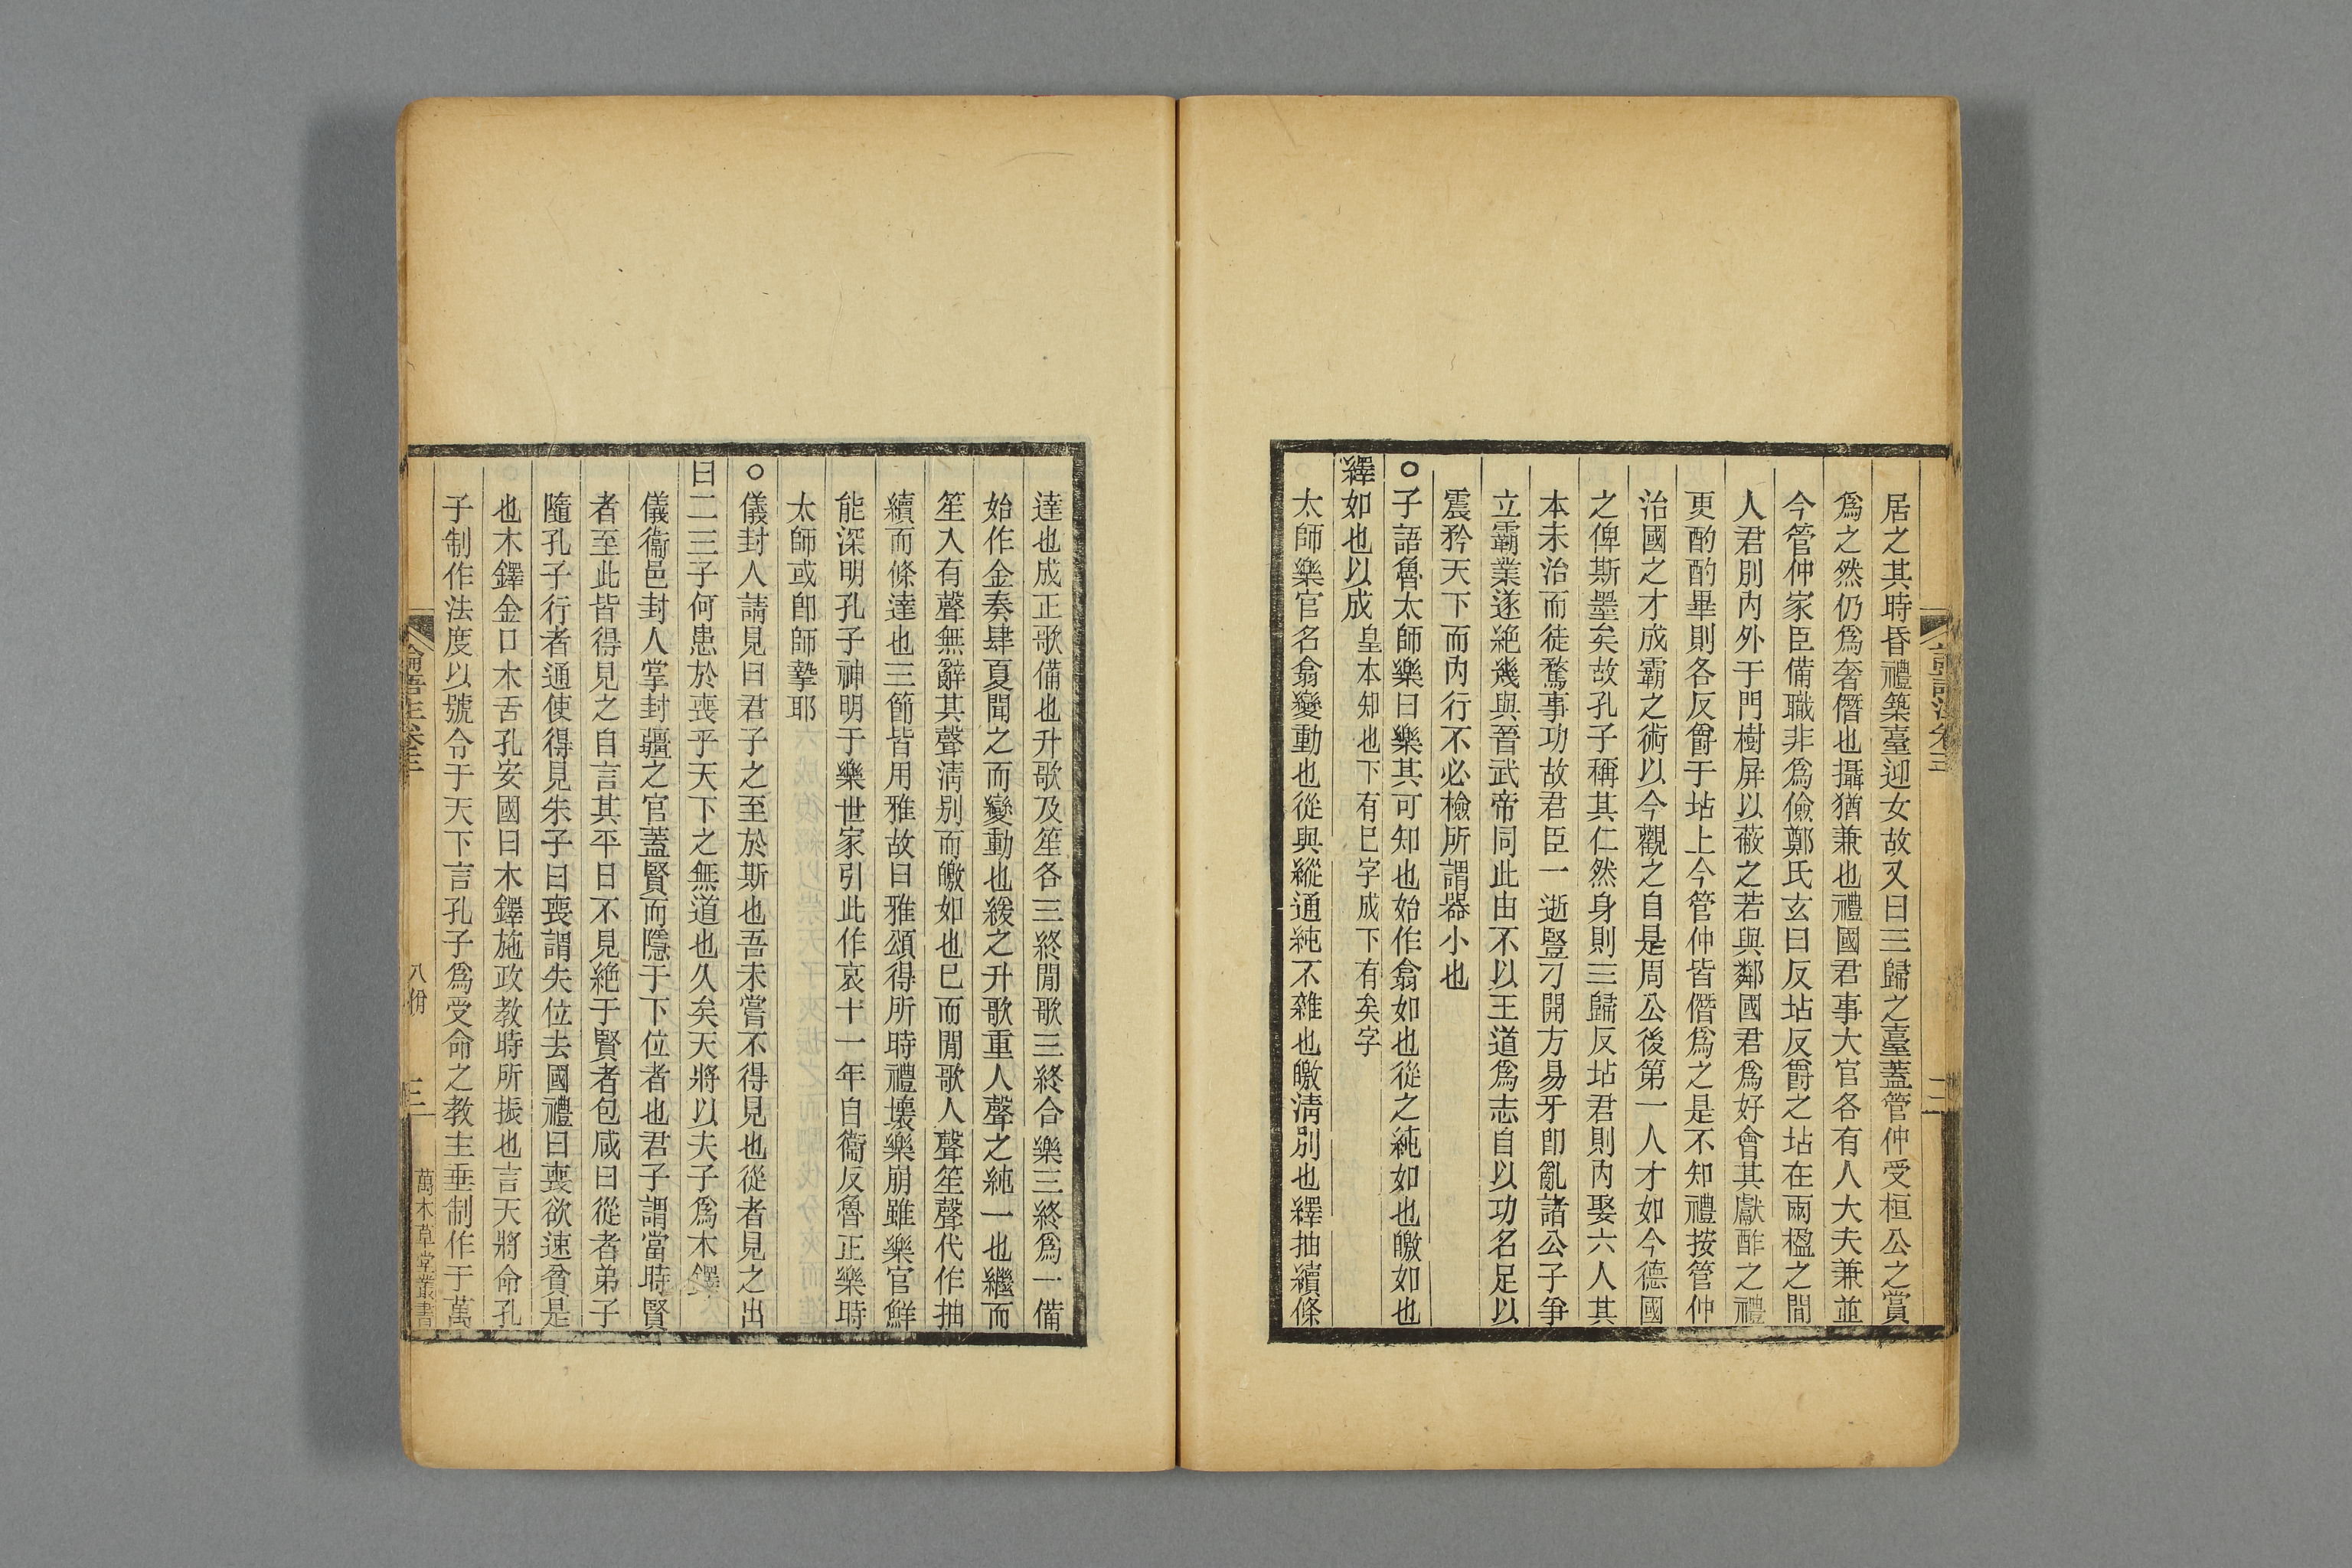 居之其時昏禮築臺迎女故又曰三歸之臺蓋管仲受桓公之賞
爲之然仍爲奢僭也攝猶兼也禮國君事大官各有人大夫兼並
今管仲家臣備職非爲儉鄭氏玄曰反坫反爵之坫在兩楹之間
人君別內外于門樹屏以蔽之若與鄰國君爲好會其獻酢之禮
更酌酌畢則各反爵于坫上今管仲皆僭爲之是不知禮按管仲
治國之才成霸之術以今觀之自是周公後第一人才如今德國
之俾斯墨矣故孔子稱其仁然身則三歸反坫君則內娶六人其
本未治而徒騖事功故君臣一逝豎刁開方易牙卽亂諸公子爭
立霸業遂絶幾與晉武帝同此由不以王道爲志自以功名足以
震矜天下而內行不必檢所謂器小也
○子語魯太師樂曰樂其可知也始作翕如也從之純如也皦如也
繹如也以成皇本知也下有巳字成下有矣字
太師樂官名翕變動也從與縱通純不雜也皦淸別也繹抽續條
達也成正歌備也升歌及笙各三終閒歌三終合樂三終爲一備
始作金奏肆夏聞之而變動也緩之升歌重人聲之純一也繼而
笙入有聲無辭其聲淸別而皦如也巳而閒歌人聲笙聲代作抽
續而條達也三節皆用雅故曰雅頌得所時禮壞樂崩雖樂官鮮
能深明孔子神明于樂世家引此作哀十一年自衞反魯正樂時
太師或卽師摯耶
○儀封人請見曰君子之至於斯也吾未嘗不得見也從者見之出
曰二三子何患於喪乎天下之無道也久矣天將以夫子爲木鐸
儀衞邑封人掌封疆之官蓋賢而隱于下位者也君子謂當時賢
者至此皆得見之自言其平日不見絶于賢者包咸曰從者弟子
隨孔子行者通使得見朱子曰喪謂失位去國禮曰喪欲速貧是
也木鐸金口木舌孔安國曰木鐸施政教時所振也言天將命孔
子制作法度以號令于天下言孔子爲受命之教主垂制作于萬
論語注卷三
八佾
三
萬木草堂叢書